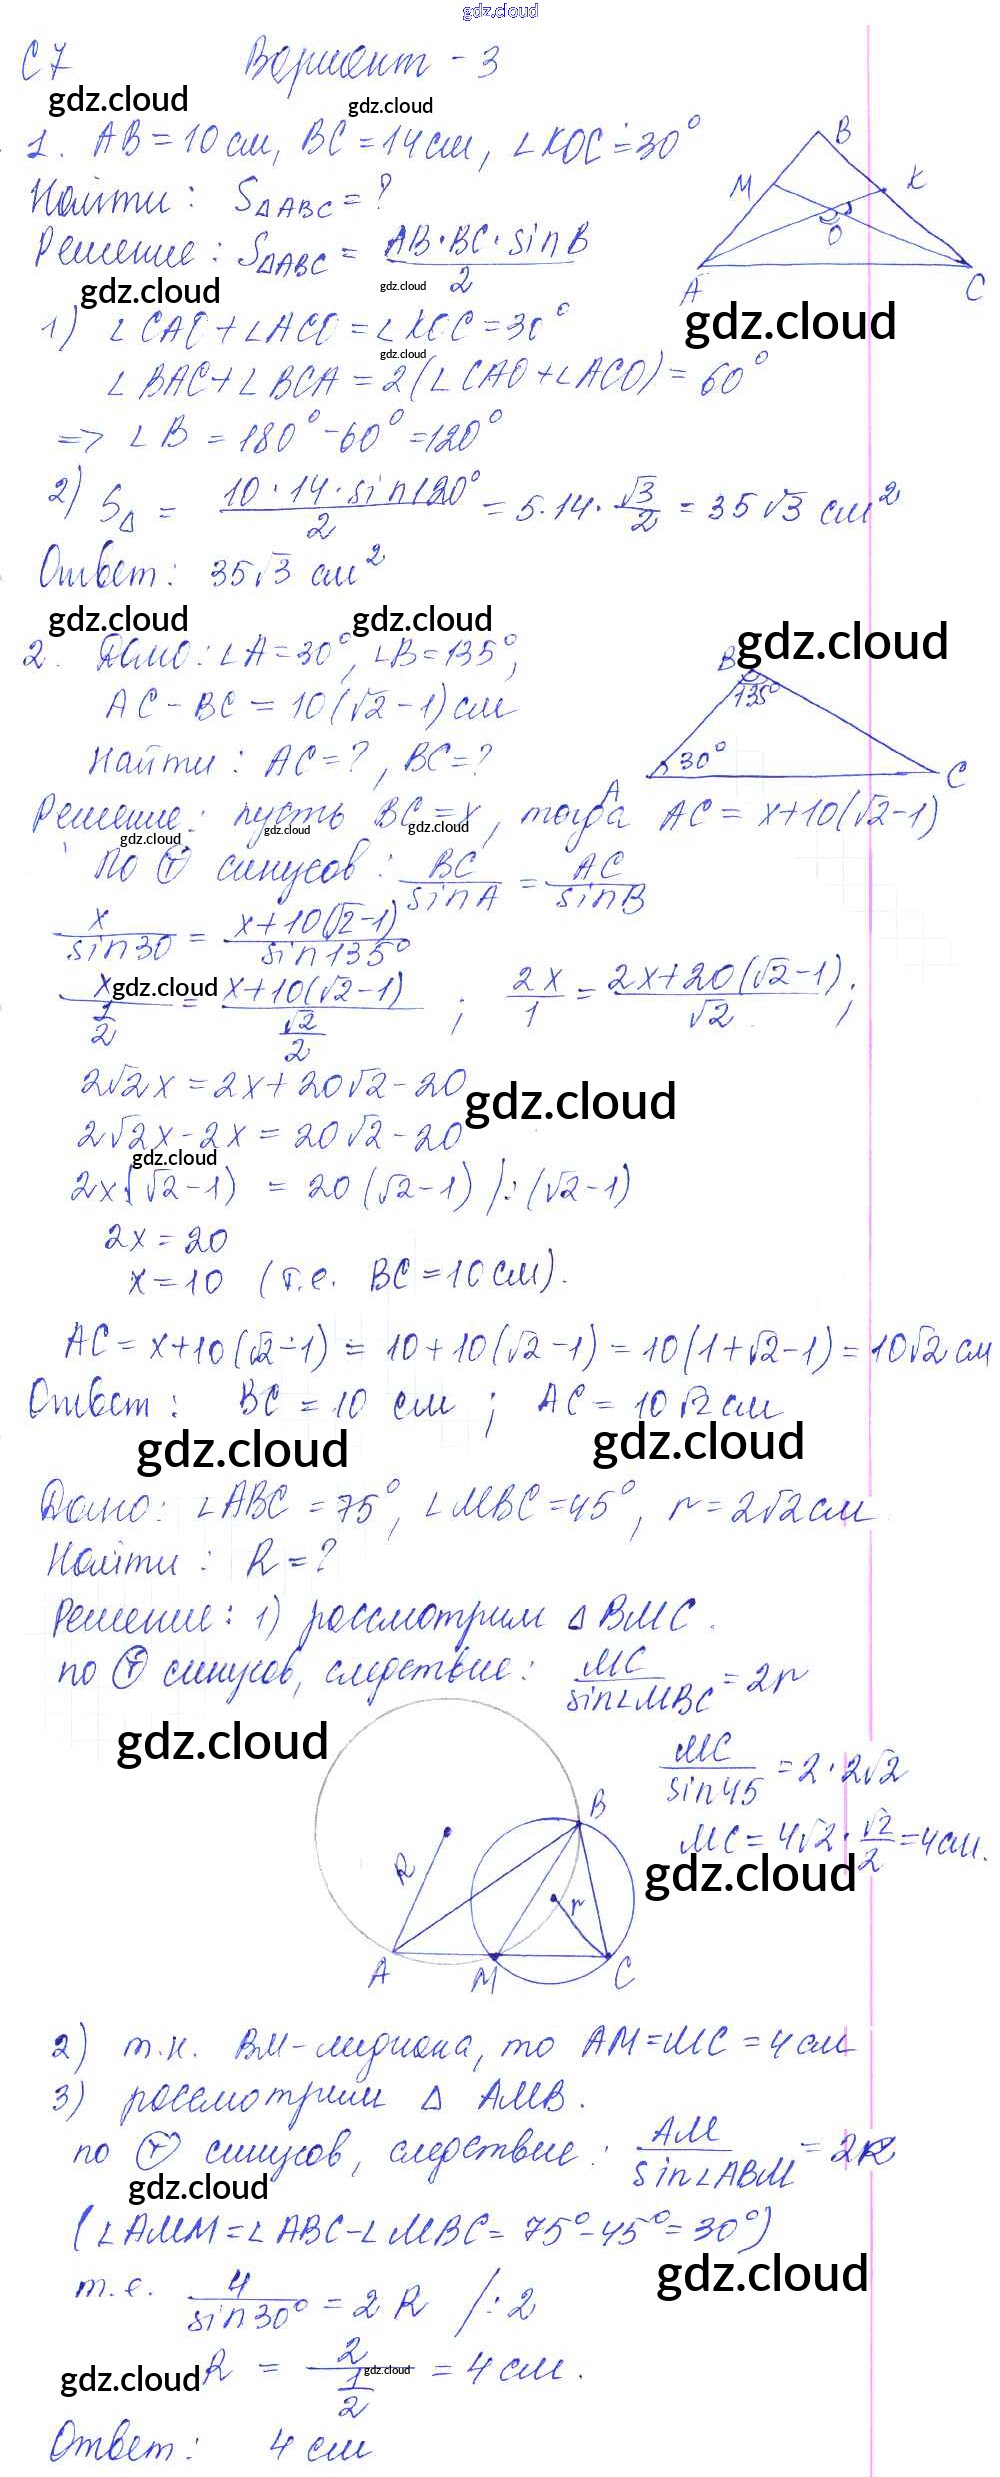 gdz.cloud
С7 Вариант - 3
gdz.cloud gdz.cloud
1. AB = 10 см, BC = 14 см, ∠KOC = 30°
Найти: S△ABC = ?
Решение: S△ABC = AB·BC·sinB / 2
gdz.cloud gdz.cloud
B
M K
O
A C
gdz.cloud
1) ∠CAO + ∠ACO = ∠KOC = 30°
gdz.cloud
∠BAC + ∠BCA = 2(∠CAO + ∠ACO) = 60°
=> ∠B = 180° - 60° = 120°
2) S△ = 10·14·sin120° / 2 = 5·14·√3/2 = 35√3 см²
Ответ: 35√3 см²
gdz.cloud gdz.cloud gdz.cloud
2. Дано: ∠A = 30°, ∠B = 135°,
AC - BC = 10(√2 - 1) см
Найти: AC = ?, BC = ?
B
135°
30°
A C
Решение: пусть BC = x, тогда AC = x + 10(√2 - 1)
gdz.cloud gdz.cloud gdz.cloud
по Ⓣ синусов: BC/sinA = AC/sinB
x/sin30 = x + 10(√2 - 1) / sin135°
gdz.cloud
x / 1/2 = x + 10(√2 - 1) / √2/2 ; 2x/1 = 2x + 20(√2 - 1) / √2 ;
2√2x = 2x + 20√2 - 20
gdz.cloud
2√2x - 2x = 20√2 - 20
gdz.cloud
2x(√2 - 1) = 20(√2 - 1) /:(√2 - 1)
2x = 20
x = 10 (т.е. BC = 10 см).
AC = x + 10(√2 - 1) = 10 + 10(√2 - 1) = 10(1 + √2 - 1) = 10√2 см
Ответ: BC = 10 см ; AC = 10√2 см
gdz.cloud gdz.cloud
Дано: ∠ABC = 75°, ∠MBC = 45°, r = 2√2 см
Найти: R = ?
Решение: 1) рассмотрим △BMC.
по Ⓣ синусов, следствие: MC/sin∠MBC = 2r
gdz.cloud
MC/sin45 = 2·2√2
MC = 4√2·√2/2 = 4 см.
gdz.cloud
B
R r
A M C
2) т.к. BM - медиана, то AM = MC = 4 см
3) рассмотрим △ AMB.
по Ⓣ синусов, следствие: AM/sin∠ABM = 2R
gdz.cloud
(∠AMM = ∠ABC - ∠MBC = 75° - 45° = 30°)
gdz.cloud
т.е. 4/sin30° = 2R /:2
gdz.cloud gdz.cloud
R = 2 / 1/2 = 4 см.
Ответ: 4 см